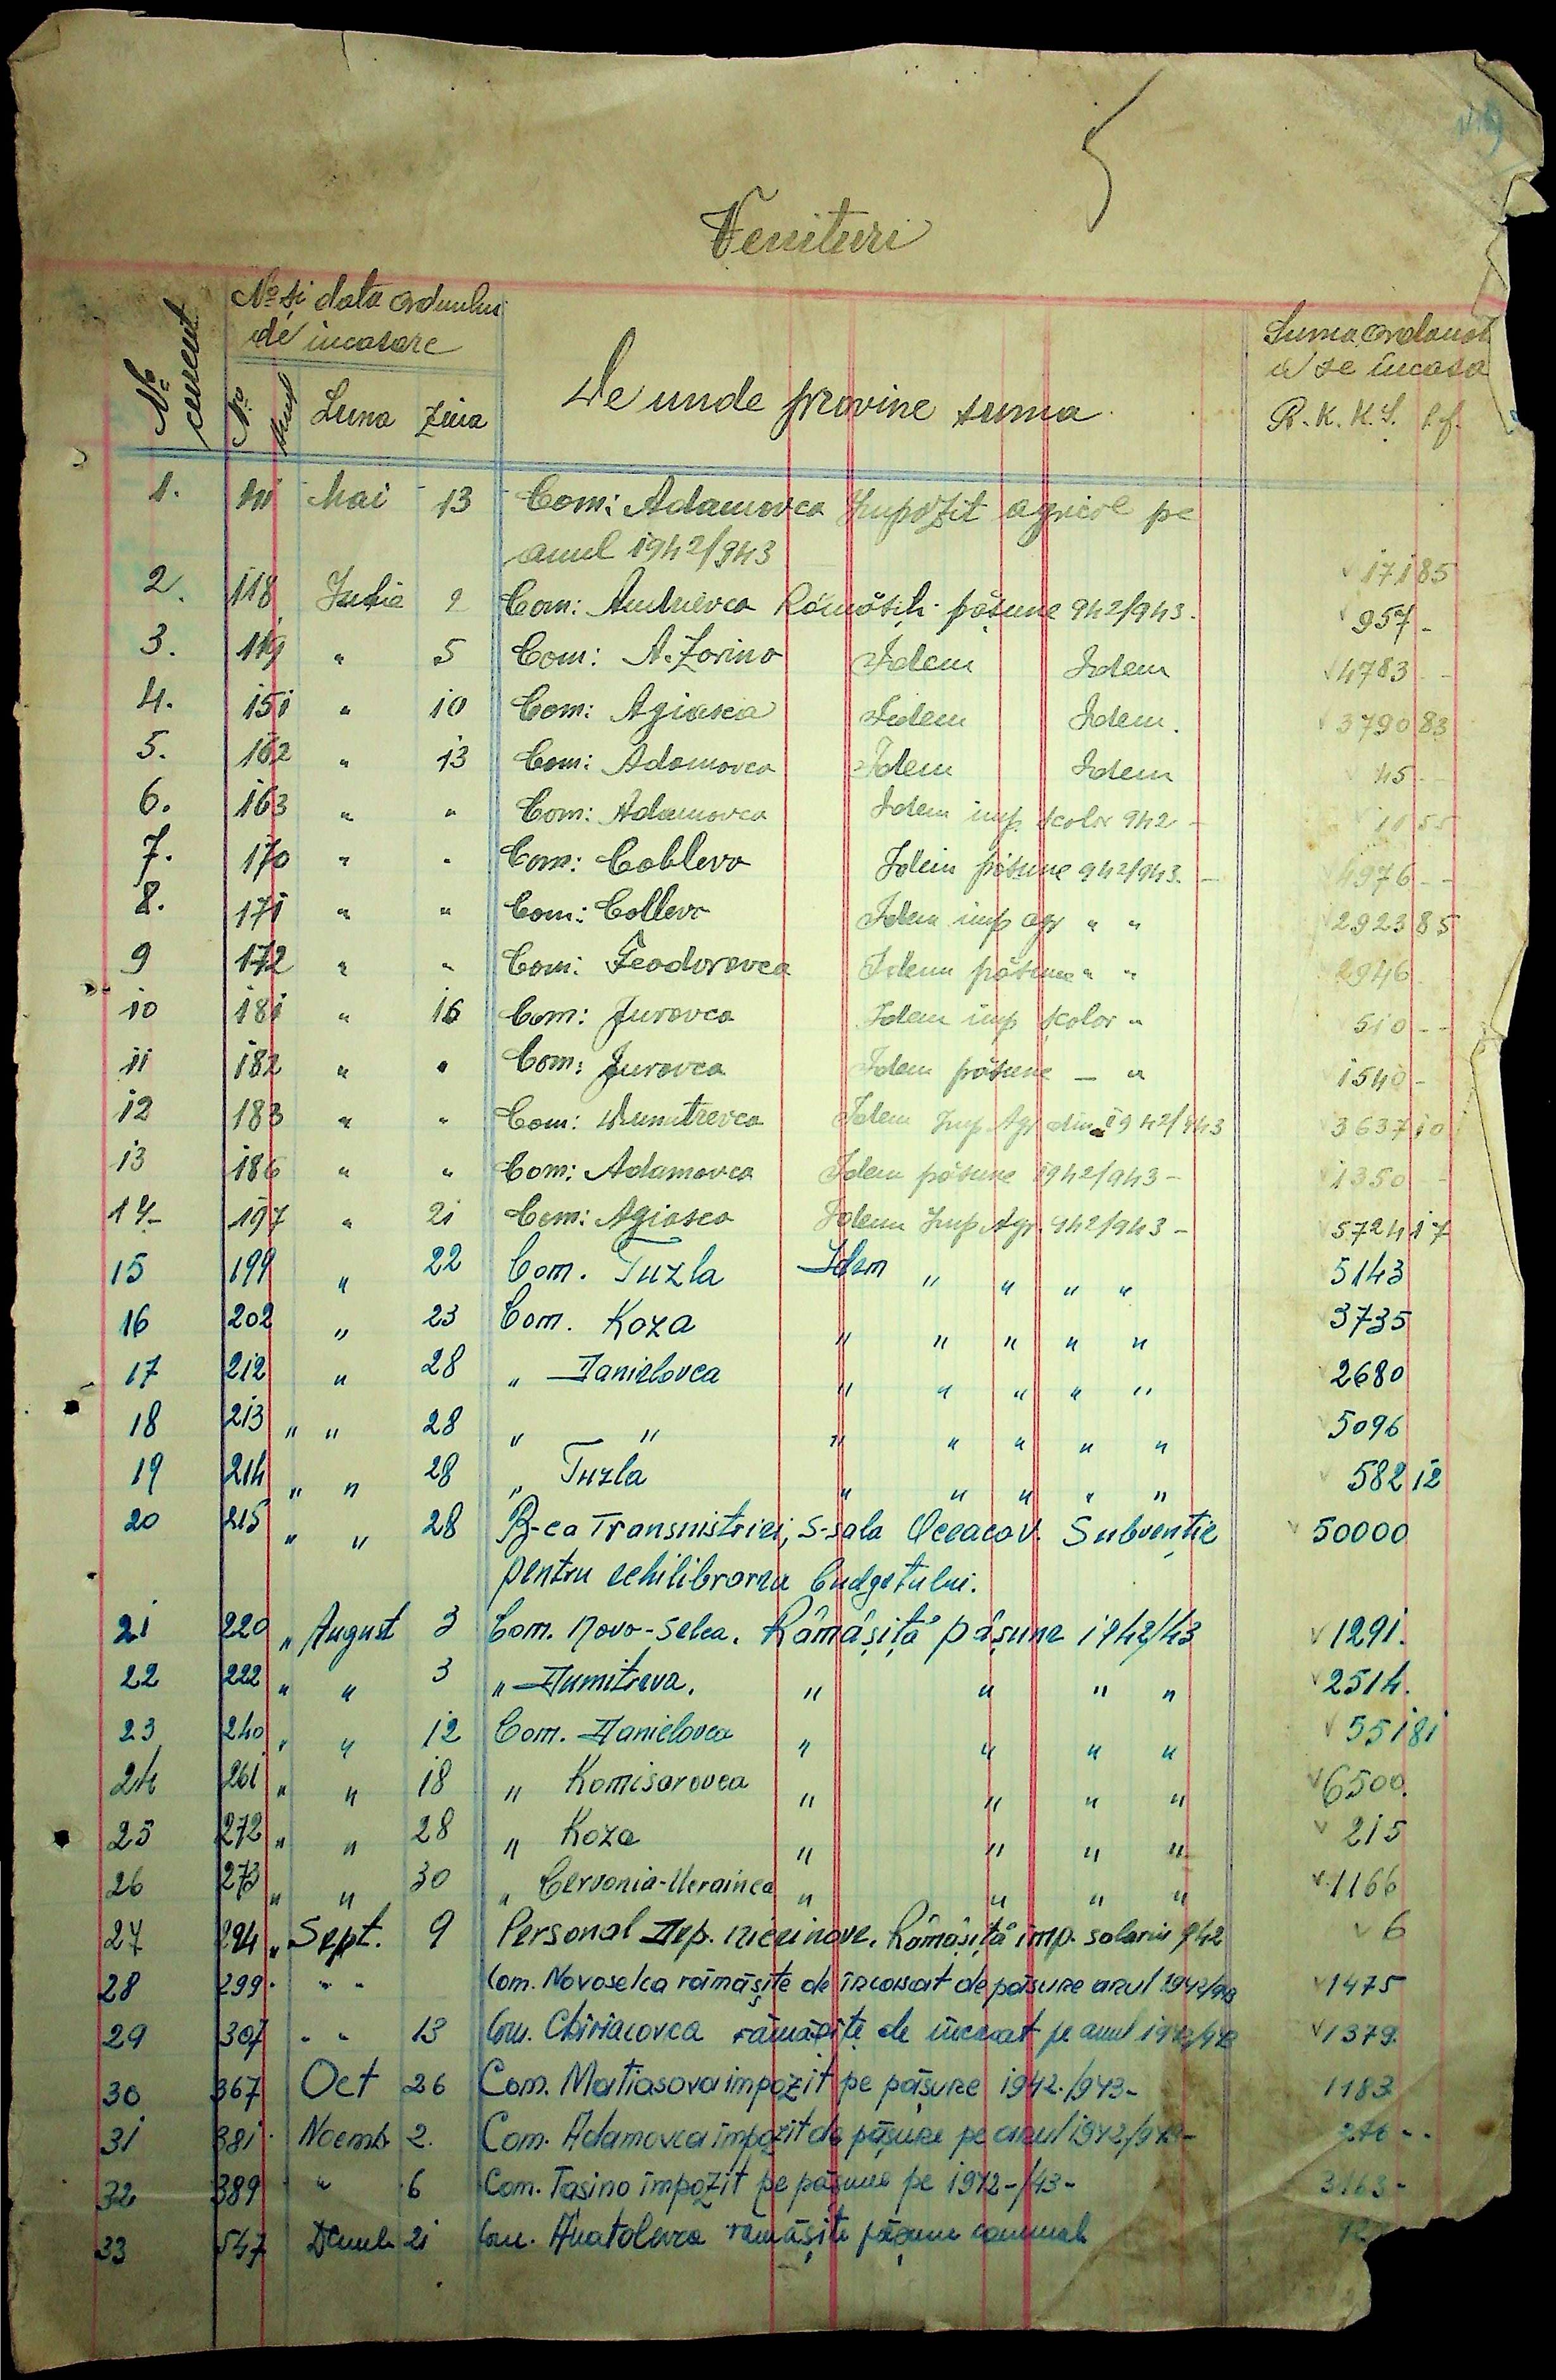 5
Venituri
No currect
No și data ordinului de incasare
No
Luna Ziua
De unde provine suma
Suma ordonat a se incasa
R.K.K.S. pf.
1. 111 Mai 13 Com: Adamovca Impozit agricol pe
anul 1942/943 17185
2. 118 Iulie 2 Com: Andrievca Rămășiți pășune 942/943. 957 -
3. 119 " 5 Com: A. Zorino Idem Idem 4783 - -
4. 151 " 10 Com: Agiasca Idem Idem. 3790 83
5. 162 " 13 Com: Adamovca Idem Idem 45 - -
6. 163 " " Com: Adamovca Idem imp. școlar 942 -
7. 170 " " Com: Coblevo Idem pășune 942/943. - 4976 - -
8. 171 " " Com: Coblevo Idem imp agr " " 2923 85
9 172 " " Com: Feodorovca Idem pășune " " 2946
10 181 " 16 Com: Jurovca Idem imp școlar " 510 - -
11 182 " " Com: Jurovca Idem pășune - " 1540 -
12 183 " " Com: Dumitrevca Idem Imp. Agr din 1942/943 3637 10
13 186 " " Com: Adamovca Idem pășune 1942/943 - 1350 - -
14- 197 " 21 Com: Agiasca Idem Imp. Agr. 942/943 - 5724 17
15 199 " 22 Com. Tuzla Idem " " " " 5143
16 202 " 23 Com. Koza " " " " " 3735
17 212 " 28 " Danielovca " " " " " 2680
18 213 " " 28 " " " " " " " 5096
19 214 " " 28 " Tuzla " " " " " 582 12
20 215 " " 28 B-ca Transnistriei, S-sala Oceacov. Subvenție 50000
pentru echilibrarea budgetului.
21 220 " August 3 Com. Novo-Selca. Rămășiță pășune 1942/43 1291.
22 222 " " 3 " Dumitreva. " " " " 2514.
23 240 " " 12 Com. Danielovca " " " " 551 81
24 261 " " 18 " Komisarovca " " " " 6500.
25 272 " " 28 " Koza " " " " 215
26 273 " " 30 " Cervonia-Ucrainca " " " " 1166
27 294 " Sept. 9 Personal Dep. Rămășiță imp. salarii 942 6
28 299. " " Com. Novoselca rămășite de încasat de pășune anul 1942/943 1475
29 307 " " 13 Com. Chiriacovca rămășițe de încasat pe anul 1942/943 1379.
30 367 Oct 26 Com. Matiasova impozit pe pășune 1942./943- 1183
31 381. Noemb. 2. Com. Adamovca impozit de pășune pe anul 1942/943- 276 - -
32 389 " 6 Com. Tasino impozit pe pășune pe 1942-/43- 3163 -
33 547 Dcemb 21 Com. Anatolevca rămășite pășune comunale